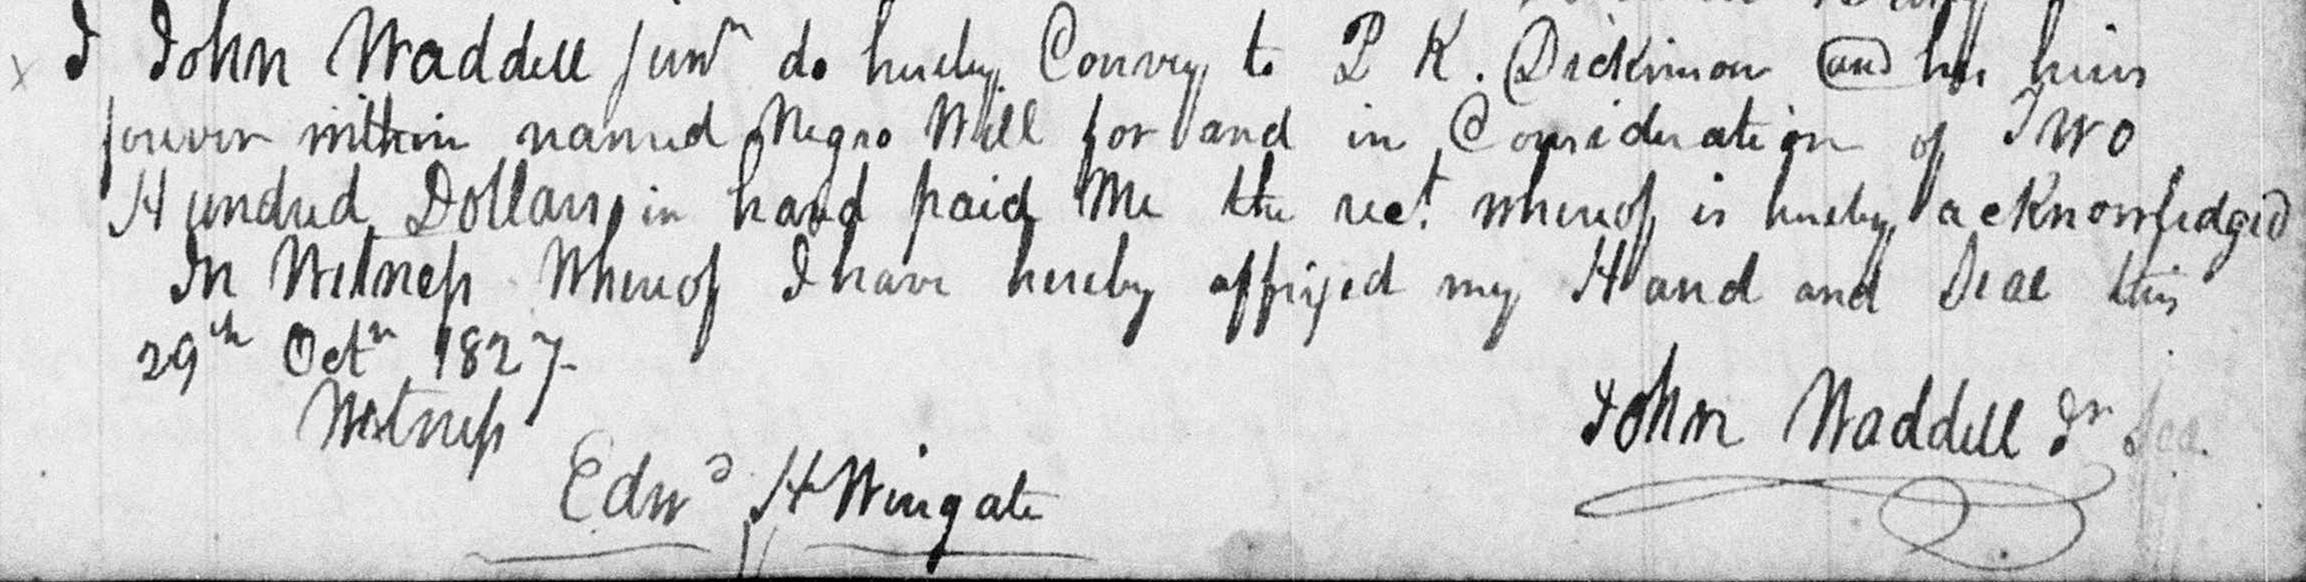 I John Waddell junr do hereby Convey to P K. Dickinson and his heirs
forever within named Negro Will for and in Consideration of Two
Hundred Dollars in hand paid Me the rect. whereof is hereby acknowledged
In Witness Whereof I have hereby affixed my Hand and Seal this
29th Octr 1827-
John Waddell Jr Sea.
Witness
Edwd H Wingate